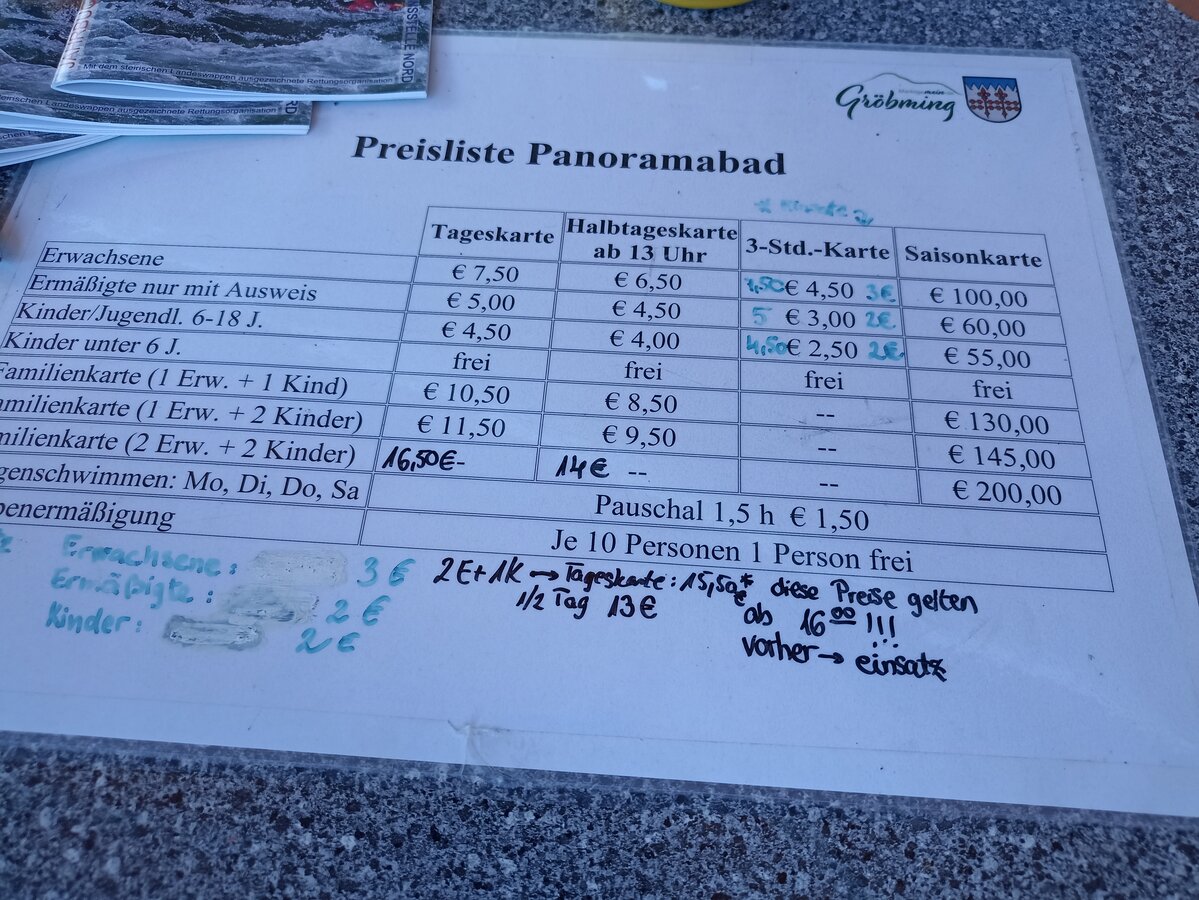 SSTELLE NORD
Mit dem steirischen Landeswappen ausgezeichnete Rettungsorganisation
steirischen Landeswappen ausgezeichnete Rettungsorganisation
Gröbming
Preisliste Panoramabad
Tageskarte Halbtageskarte ab 13 Uhr 3-Std.-Karte Saisonkarte
Erwachsene € 7,50 € 6,50 € 4,50 3€ € 100,00
Ermäßigte nur mit Ausweis € 5,00 € 4,50 5 € 3,00 2€ € 60,00
Kinder/Jugendl. 6-18 J. € 4,50 € 4,00 4,50 € 2,50 2€ € 55,00
Kinder unter 6 J. frei frei frei frei
Familienkarte (1 Erw. + 1 Kind) € 10,50 € 8,50 -- € 130,00
amilienkarte (1 Erw. + 2 Kinder) € 11,50 € 9,50 -- € 145,00
milienkarte (2 Erw. + 2 Kinder) 16,50€- 14€ -- -- € 200,00
genschwimmen: Mo, Di, Do, Sa Pauschal 1,5 h € 1,50
penermäßigung Je 10 Personen 1 Person frei
Erwachsene: 3€
Ermäßigte: 2€
Kinder: 2€
2E+1K → Tageskarte: 15,50€
1/2 Tag 13€
* diese Preise gelten
ab 16 00 !!!
vorher → einsatz